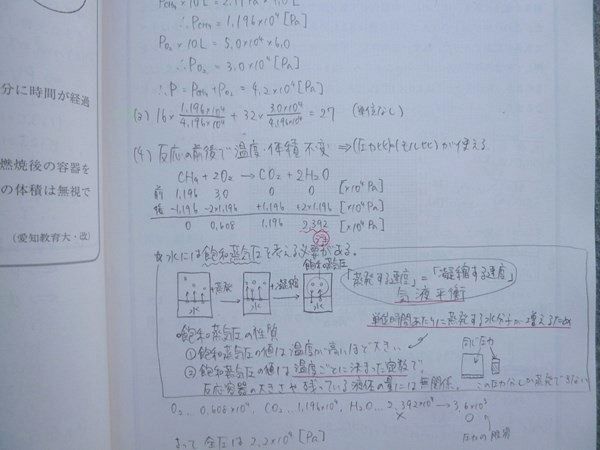 分に時間が経過
燃焼後の容器を
の体積は無視で
(愛知教育大・改)
∴PCH4 = 1.196×10⁴ [Pa]
PO2 × 10L = 5.0×10⁴×6.0
∴PO2 = 3.0×10⁴ [Pa]
∴P = PCH4 + PO2 = 4.2×10⁴ [Pa]
(3) 16× 1.196×10⁴/4.196×10⁴ + 32× 3.0×10⁴/4.196×10⁴ = 27 (単位なし)
(4) 反応の前後で温度・体積不変 ⇒ (圧力比)=(モル比)が使える
CH4 + 2O2 → CO2 + 2H2O
前 1.196 3.0 0 0 [×10⁴Pa]
後 -1.196 -2×1.196 +1.196 +2×1.196 [×10⁴Pa]
0 0.608 1.196 2.392 [×10⁴Pa]
☆水には飽和蒸気圧を考える必要がある。
飽和蒸気圧
水 →蒸発 水 →凝縮 水
「蒸発する速度」=「凝縮する速度」
気液平衡
単位時間あたりに蒸発する水分子が増えるため
飽和蒸気圧の性質
①飽和蒸気圧の値は温度が高いほど大きい
②飽和蒸気圧の値は温度ごとに決まった定数で、
反応容器の大きさや残っている液体の量には無関係。
同じ圧力
この圧力分しか蒸発できない
O2… 0.608×10⁴, CO2… 1.196×10⁴, H2O… 2.392×10⁴ → 3.6×10³
× ○
圧力の限界
よって全圧は 2.2×10⁴ [Pa]